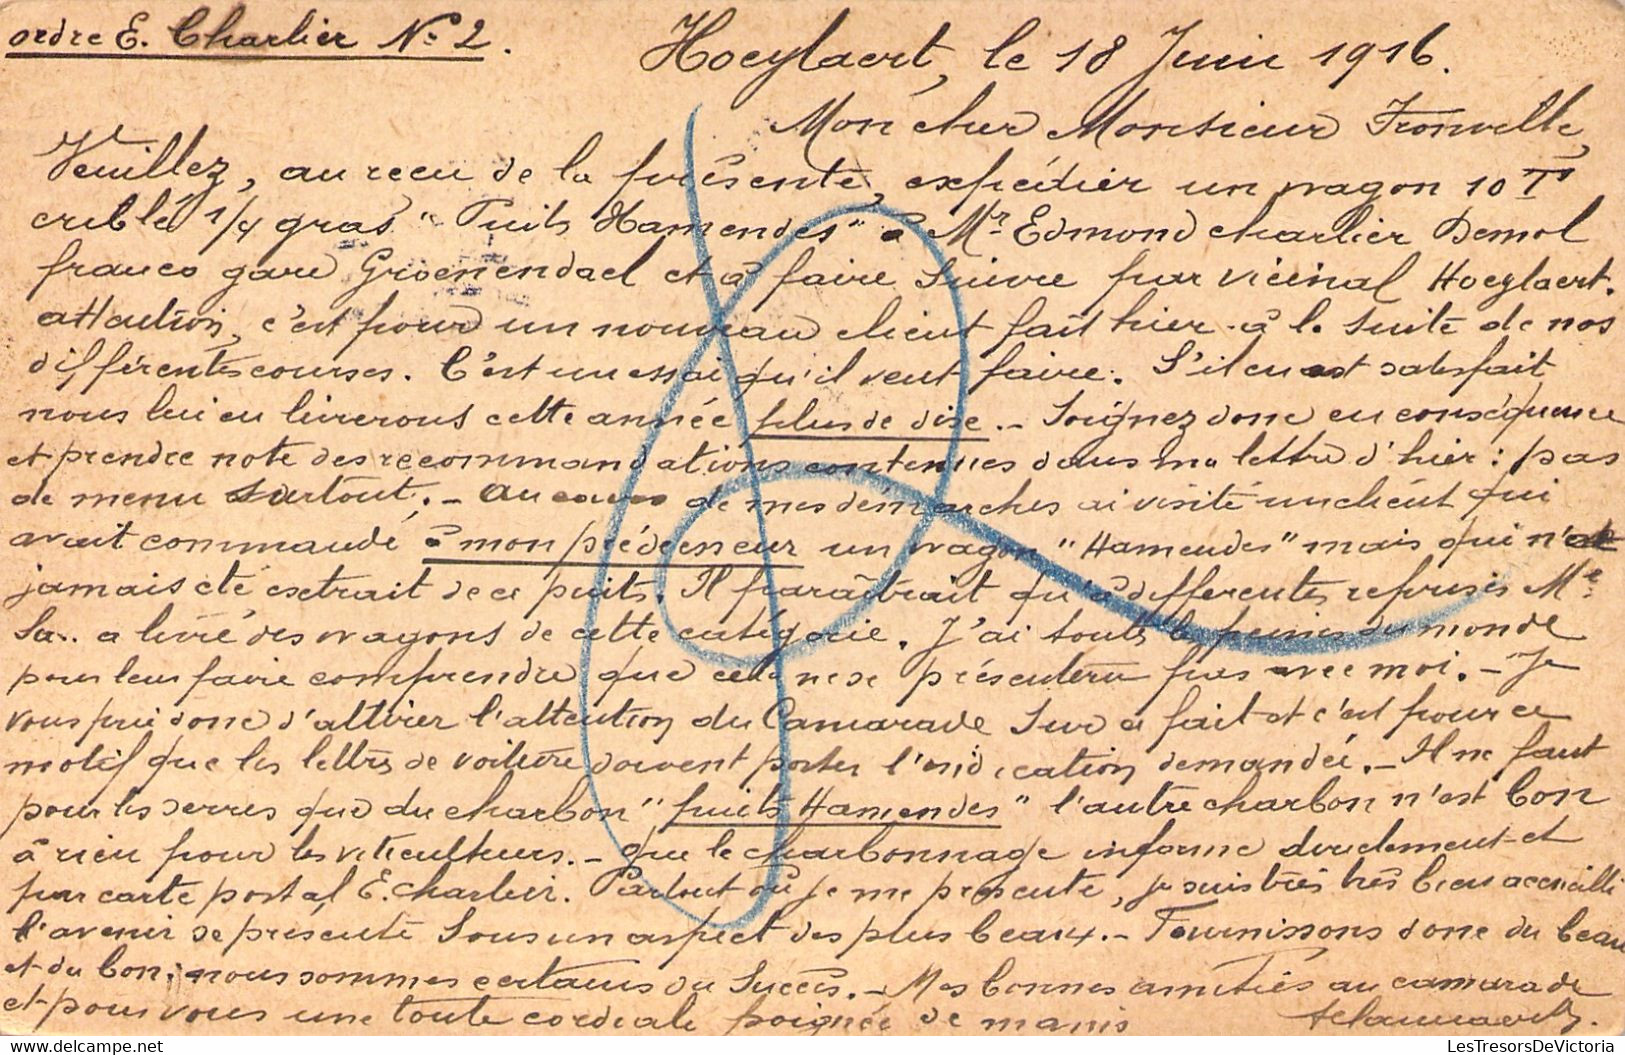 ordre E. Charlier No 2.
Hoeylaert, le 18 Juin 1916.
Mon cher Monsieur Fronville,
Veuillez, au reçu de la présente, expédier un wagon 10 Ts
criblé 1/4 gras "Puits Hamendes" à Mr Edmond Charlier Demol
franco gare Groenendael et à faire suivre par vicinal Hoeylaert.
attention, c'est pour un nouveau client fait hier à la suite de nos
différentes courses. C'est un essai qu'il veut faire. S'il en est satisfait
nous lui en livrerons cette année plus de dix. - Soignez donc en conséquence
et prendre note des recommandations contenues dans ma lettre d'hier : pas
de menu surtout. - Au cours de mes démarches ai visité un client qui
avait commandé à mon prédécesseur un wagon "Hamendes" mais qui n'est
jamais été extrait de ce puits. Il paraîtrait qu'à différentes reprises Mr
Sa.. a livré des wagons de cette catégorie. J'ai toutes les peines du monde
pour leur faire comprendre que cela ne se présentera pas avec moi. - Je
vous prie donc d'attirer l'attention du Camarade sur ce fait et c'est pour ce
motif que les lettres de voiture doivent porter l'indication demandée. - Il ne faut
pour les serres que du charbon "puits Hamendes" l'autre charbon n'est bon
à rien pour les viticulteurs. - Que le charbonnage informe directement et
par carte postal E. Charlier. Partout où je me présente, je suis très très bien accueilli
l'avenir se présente sous un aspect des plus beaux. - Fournissons donc du beau
et du bon, nous sommes certains du succès. - Mes bonnes amitiés au camarade
et pour vous une toute cordiale poignée de mains
LesTresorsDeVictoria.com
LesTresorsDeVictoria